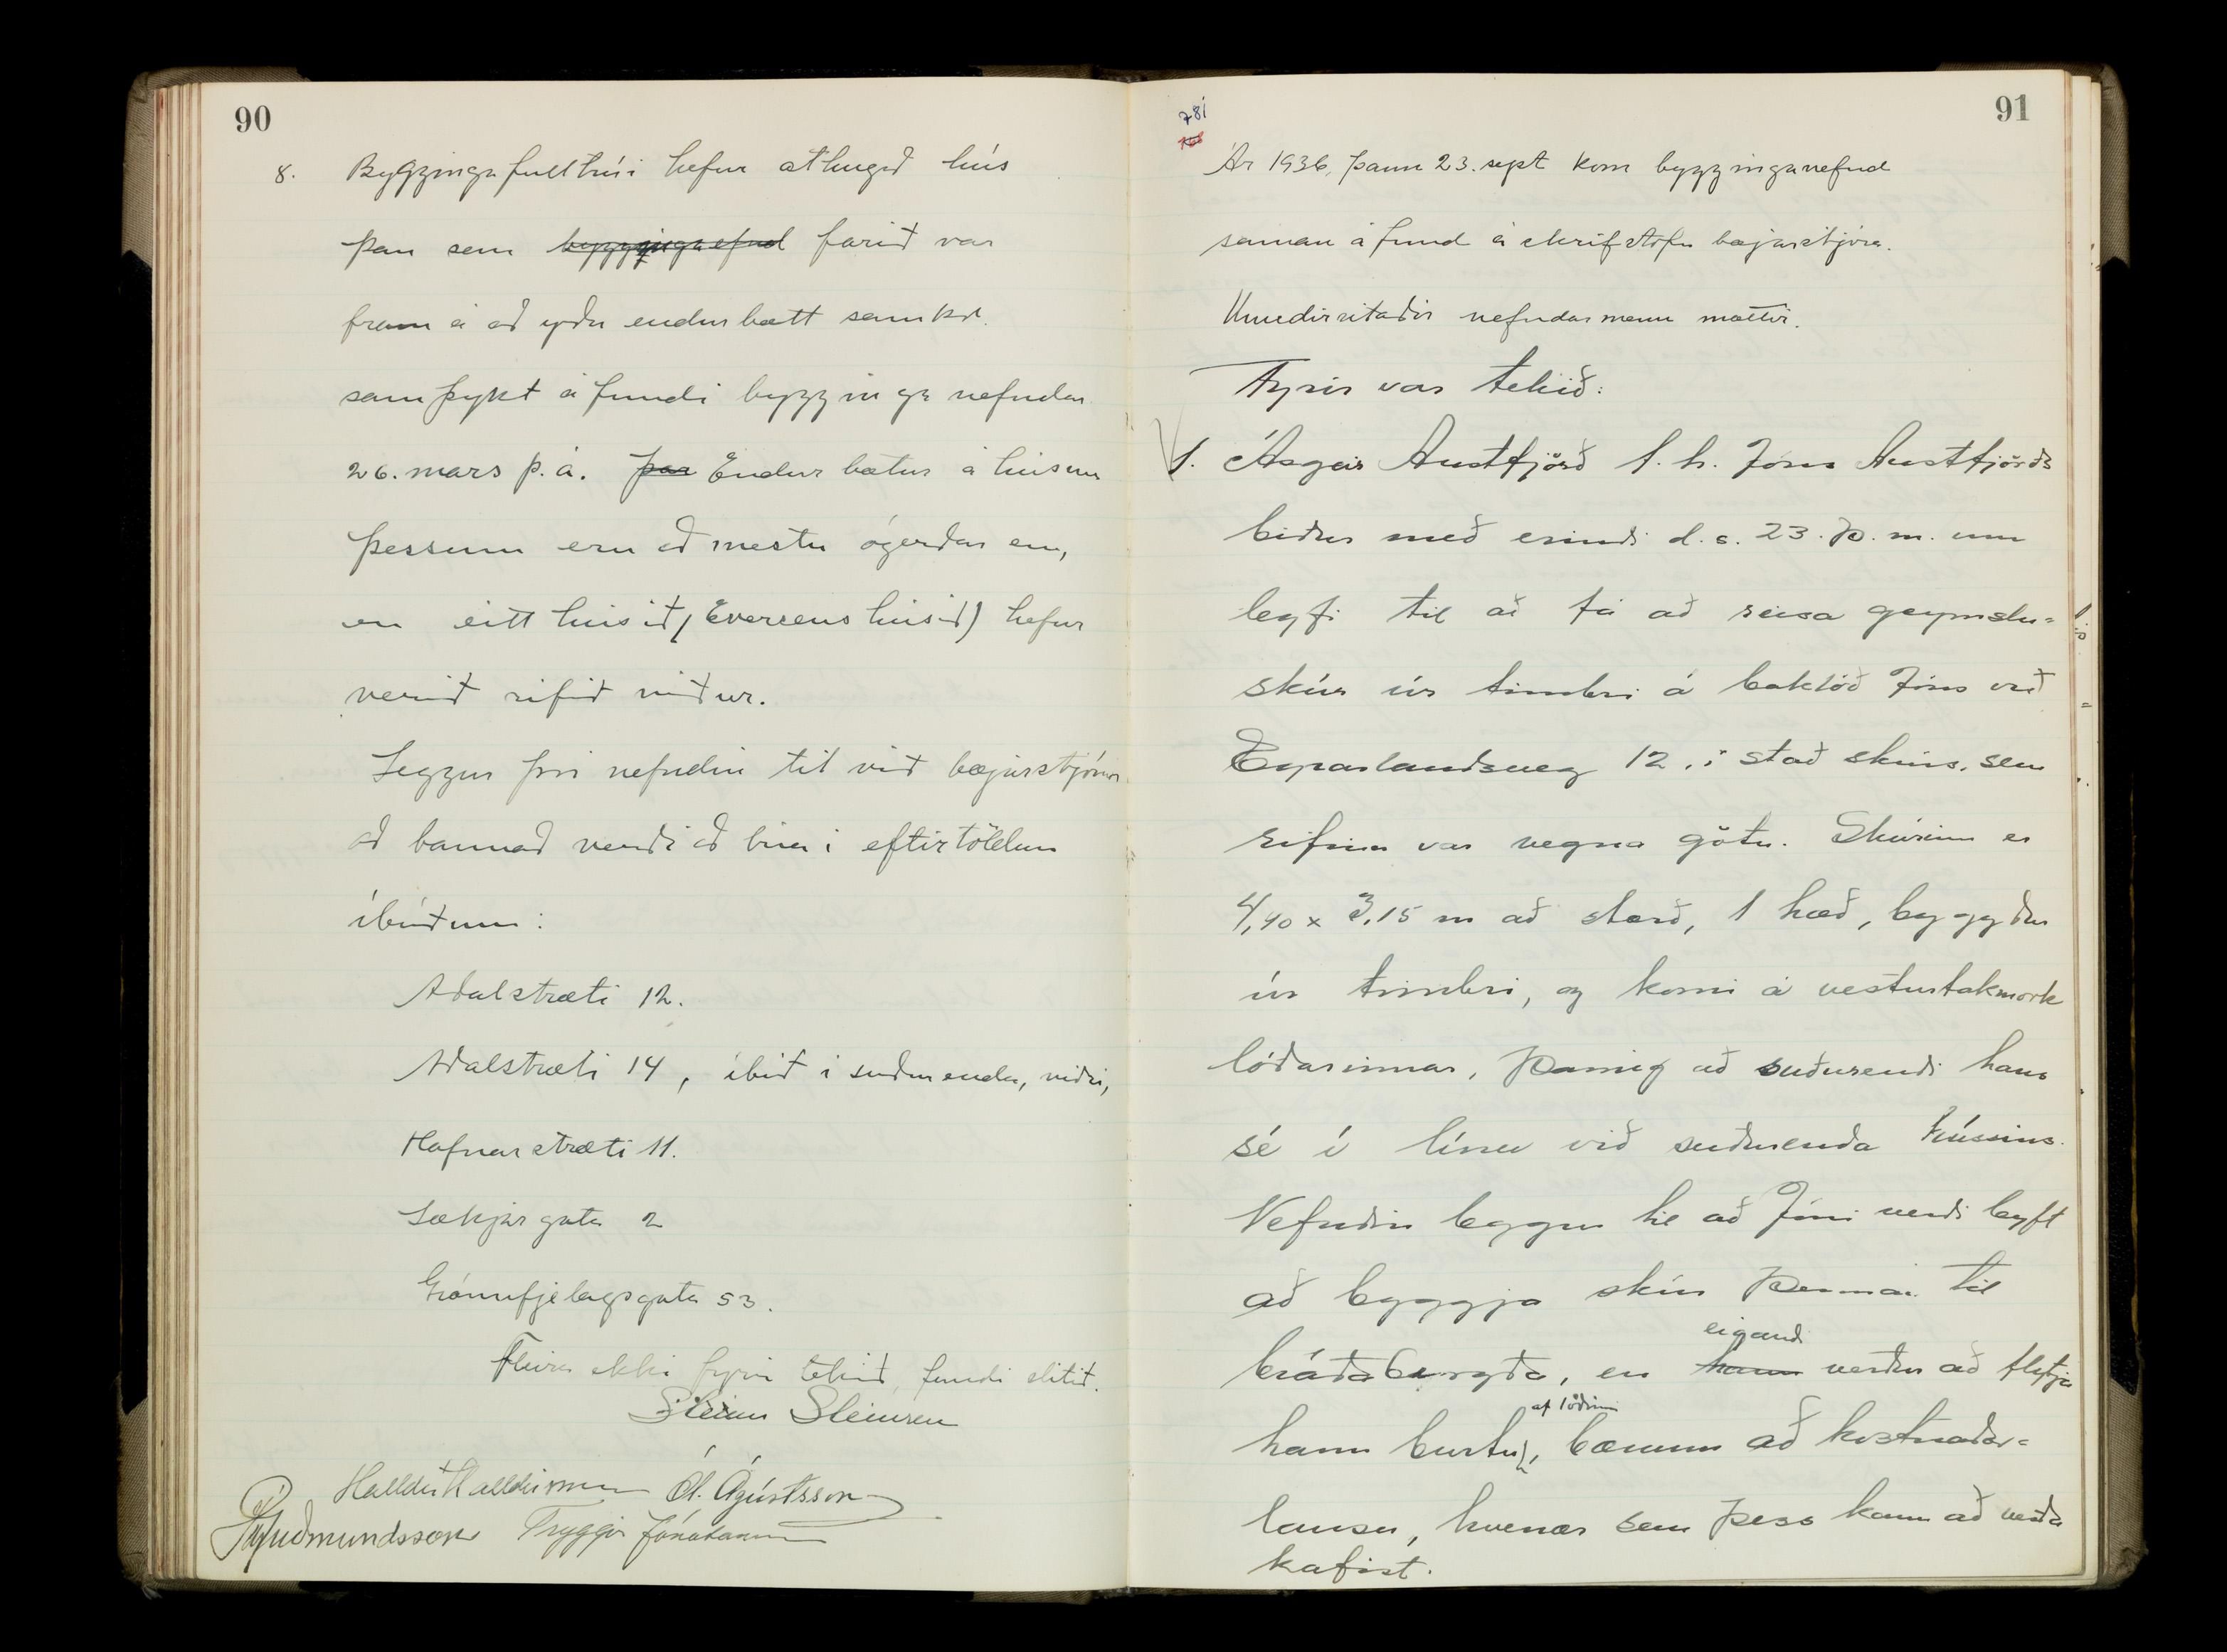 90
8. Byggingafulltrúi hefur athugað hús
þau sem bygginganefnd farið var
fram á að yrðu endurbætt samkv.
samþykt á fundi bygginganefndar
26. mars þ.á. þar Endurbætur á húsum
þessum eru að mestu ógerðar en,
en eitt húsið, (Eversenshúsið) hefur
verið rifið niður.
Leggur því nefndin til við bæjarstjórn
að bannað verði að búa í eftirtöldum
íbúðum:
Aðalstræti 12.
Aðalstræti 14, íbúð í suðurenda, niðri,
Hafnarstræti 11.
Lækjargata 2
Gránufjelagsgata 53.
Fleira ekki fyrir tekið, fundi slitið.
Steinn Steinsen
Halldór Halldórsson Ól. Ágústsson
Guðmundsson Tryggvi Jónatansson
91
781
Ár 1936, þann 23. sept kom bygginganefnd
saman á fund á skrifstofu bæjarstjóra.
Undirritaðir nefndarmenn mættir.
Fyrir var tekið:
1. Ásgeir Austfjörð f.h. Jóns Austfjörðs
biður með erindi d.s. 23. þ.m. um
leyfi til að fá að reisa geymslu-
skúr úr timbri á baklóð Jóns við
Eyrarlandsveg 12, í stað skúrs, sem
rifinn var vegna götu. Skúrinn er
4,40 x 3,15 m að stærð, 1 hæð, byggður
úr timbri, og komi á vesturtakmörk
lóðarinnar, þannig að suðurendi hans
sé í línu við suðurenda hússins.
Nefndin leggur til að Jóni verði leyft
að byggja skúr þennan til
eigandi
bráðabirgða, en hann verður að flytja
af lóðinni
hann burtu, bænum að kostnaðar-
lausu, hvenær sem þess kann að verða
krafist.